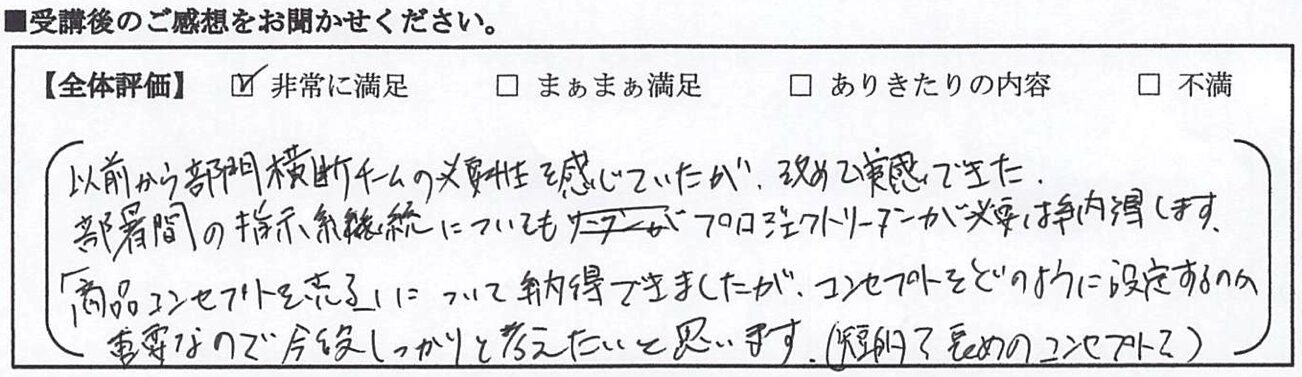 ■受講後のご感想をお聞かせください。
【全体評価】 ☑ 非常に満足 □ まぁまぁ満足 □ ありきたりの内容 □ 不満
以前から部門横断チームの必要性を感じていたが、改めて実感できた.
部署間の指示系統についても プロジェクトリーダーが必要は納得します.
「商品コンセプトを売る」について納得できましたが、コンセプトをどのように設定するのか
重要なので今後しっかりと考えたいと思います.(短期で長めのコンセプトで)